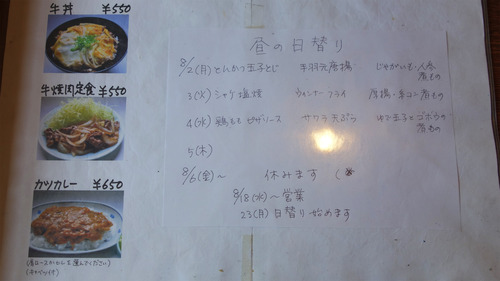 牛丼 ¥550
牛焼肉定食 ¥550
カツカレー ¥650
(肩ロースかヒレを選んでください)
(キャベツ付)
昼の日替り
8/2(月) とんかつ玉子とじ 手羽元唐揚 じゃがいも・人参煮もの
3(火) シャケ塩焼 ウィンナーフライ 厚揚・辛子煮もの
4(水) 鶏ももピザソース サクラ天ぷら ゆで玉子とゴボウの煮もの
5(木)
8/6(金)〜 休みます
8/18(水)〜営業
23(月)日替り始めます